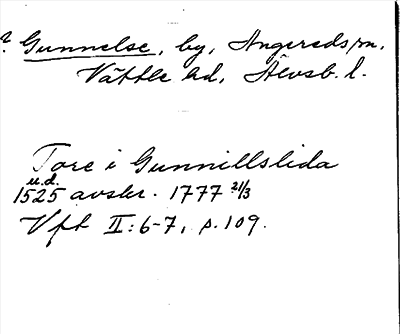 Gunnelse, by, Angereds sn,
Vättle hd, Älvsb. l.
Tore i Gunnillslida
u.d.
1525 avskr. 1777 21/3
Vft II:6-7, s. 109.